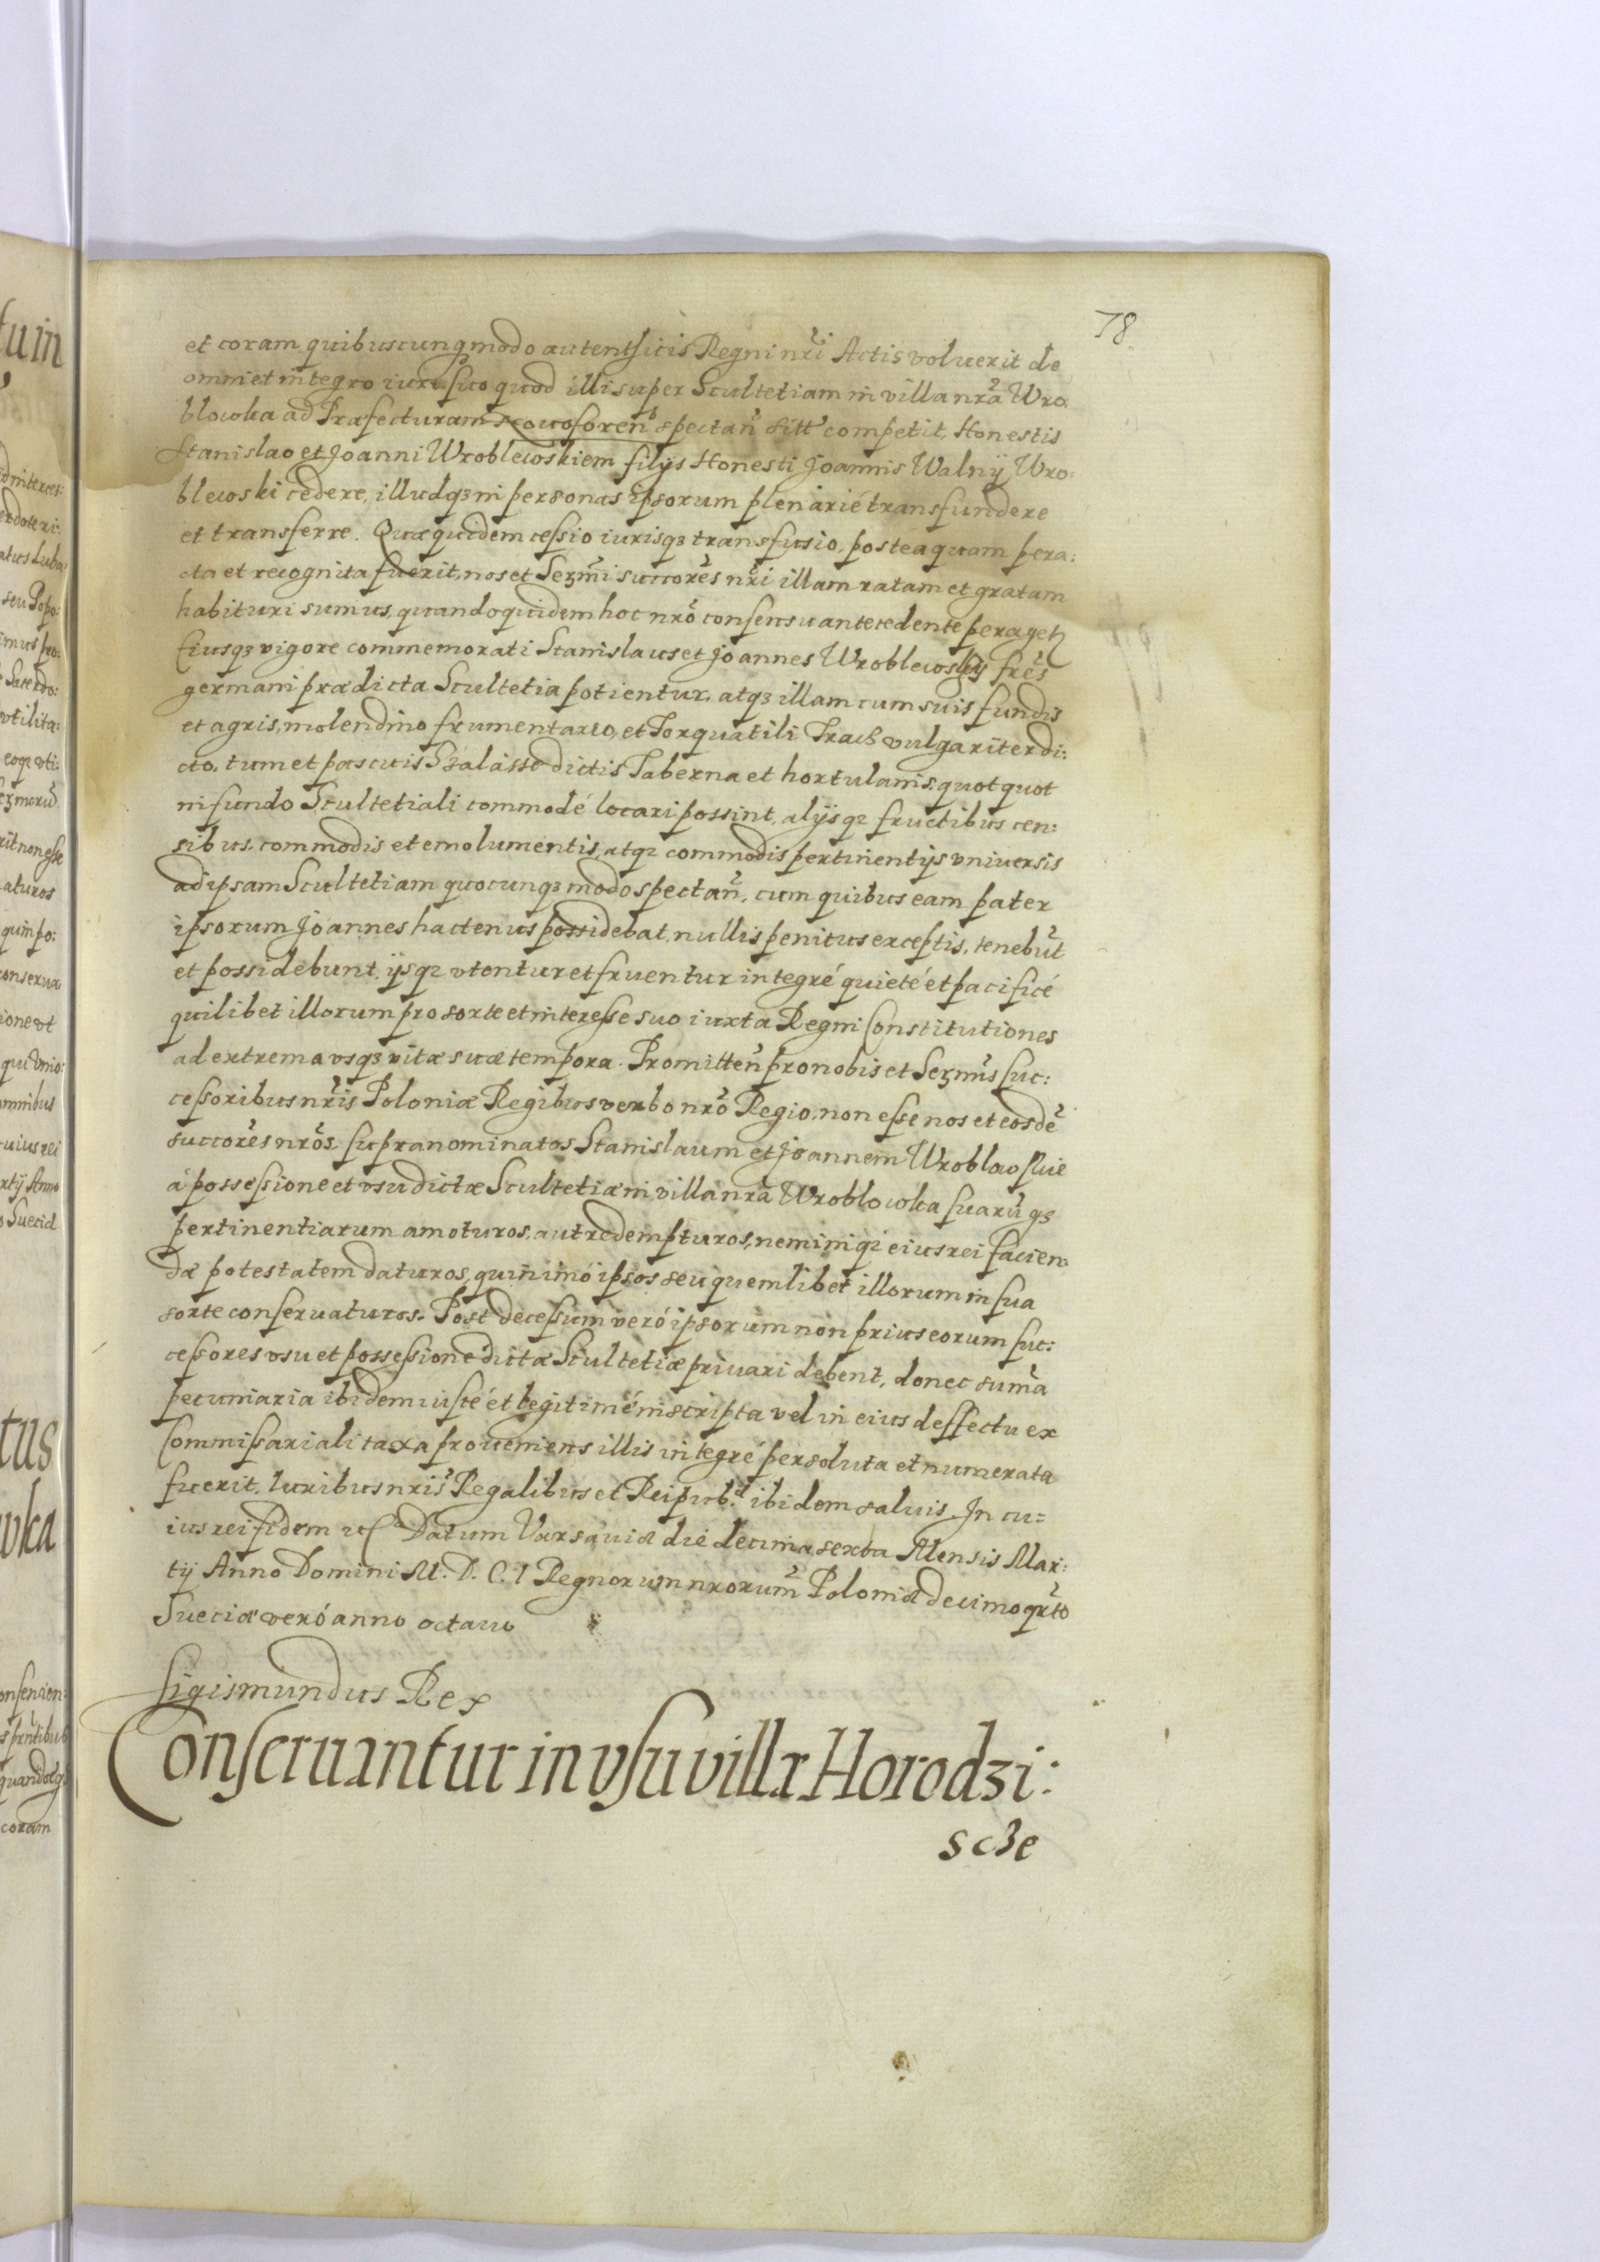 78
et coram quibuscunq3 modo autenthicis Regni nři Actis voluerit de
omni et integro iure suo quod illi super Scultetiam in villa nřa Wro
blowka ad Præfecturam Nowoforeñ spectañ sitt competit, Honestis
Stanislao et Joanni Wroblewoskiem filijs Honesti Joannis Walnÿ Wro:
blewski cedere, illudq3 in personas ipsorum plenarié transfundere
et transferre. Quæ quidem cessio iurisq3 transfusio, posteaquam pera:
cta et recognita fuerit, nos et Ser̃mi succorẽs nři illam ratam et gratam
habituri sumus, quandoquidem hoc nřo consensu antecedente perageť
Eiusq3 vigore commemorati Stanislaus et Joannes Wroblewoskÿ fřes
germani prædicta Scultetia potientur, atq3 illam cum suis fundis
et agris, molendino frumentario, et Torquatili Tracz vulgariter di:
cto, tum et pascuis Szalasse dictis Taberna et hortulanis, quot quot
in fundo Scultetiali commodé locari possint, alijsq3 fructibus cen:
sibus, commodis et emolumentis, atq3 commodis pertinentijs vniuersis
ad ipsam Scultetiam quocunq3 modo spectañ, cum quibus eam pater
ipsorum Joannes hactenus possidebat, nullis penitus exceptis, tenebũt
et possidebunt, ijsq3 vtentur et fruentur integré quieté et pacificé
quilibet illorum pro sorte et interesse suo iuxta Regni Constitutiones
ad extrema vsq3 vitæ suæ tempora. Promitteñ pro nobis et Ser̃mis suc:
cessoribus nřis Poloniæ Regibus verbo nřo Regio, non esse nos et eosdẽ
succorẽs nřos, supranominatos Stanislaum et Joannem Wroblowskie
à possessione et vsu dictæ Scultetiæ in villa nřa Wroblowka suarũq3
pertinentiarum amoturos, aut redempturos, neminiq3 eius rei facien
dæ potestatem daturos, quinimó ipsos seu quemlibet illorum in sua
sorte conseruaturos. Post decessum veró ipsorum non prius eorum suc:
cessores vsu et possessione dictæ Scultetiæ priuari debent, donec sum̃a
pecuniaria ibidem iusté et legitimé inscripta vel in eius deffectu ex
Commissariali taxa proueniens illis integré persoluta et numerata
fuerit. Iuribus nřis Regalibus et Reipub. ibidem saluis. In cu=
ius rei fidem etc. Datum Varsauiæ die decima sexta Mensis Mar:
tij Anno Domini M. D. C. I Regnorum nrorum̃ Poloniæ decimo qrto
Sueciæ veró anno octauo
Sigismundus Rex
Conseruantur in vsu villæ Horodzi:
scze